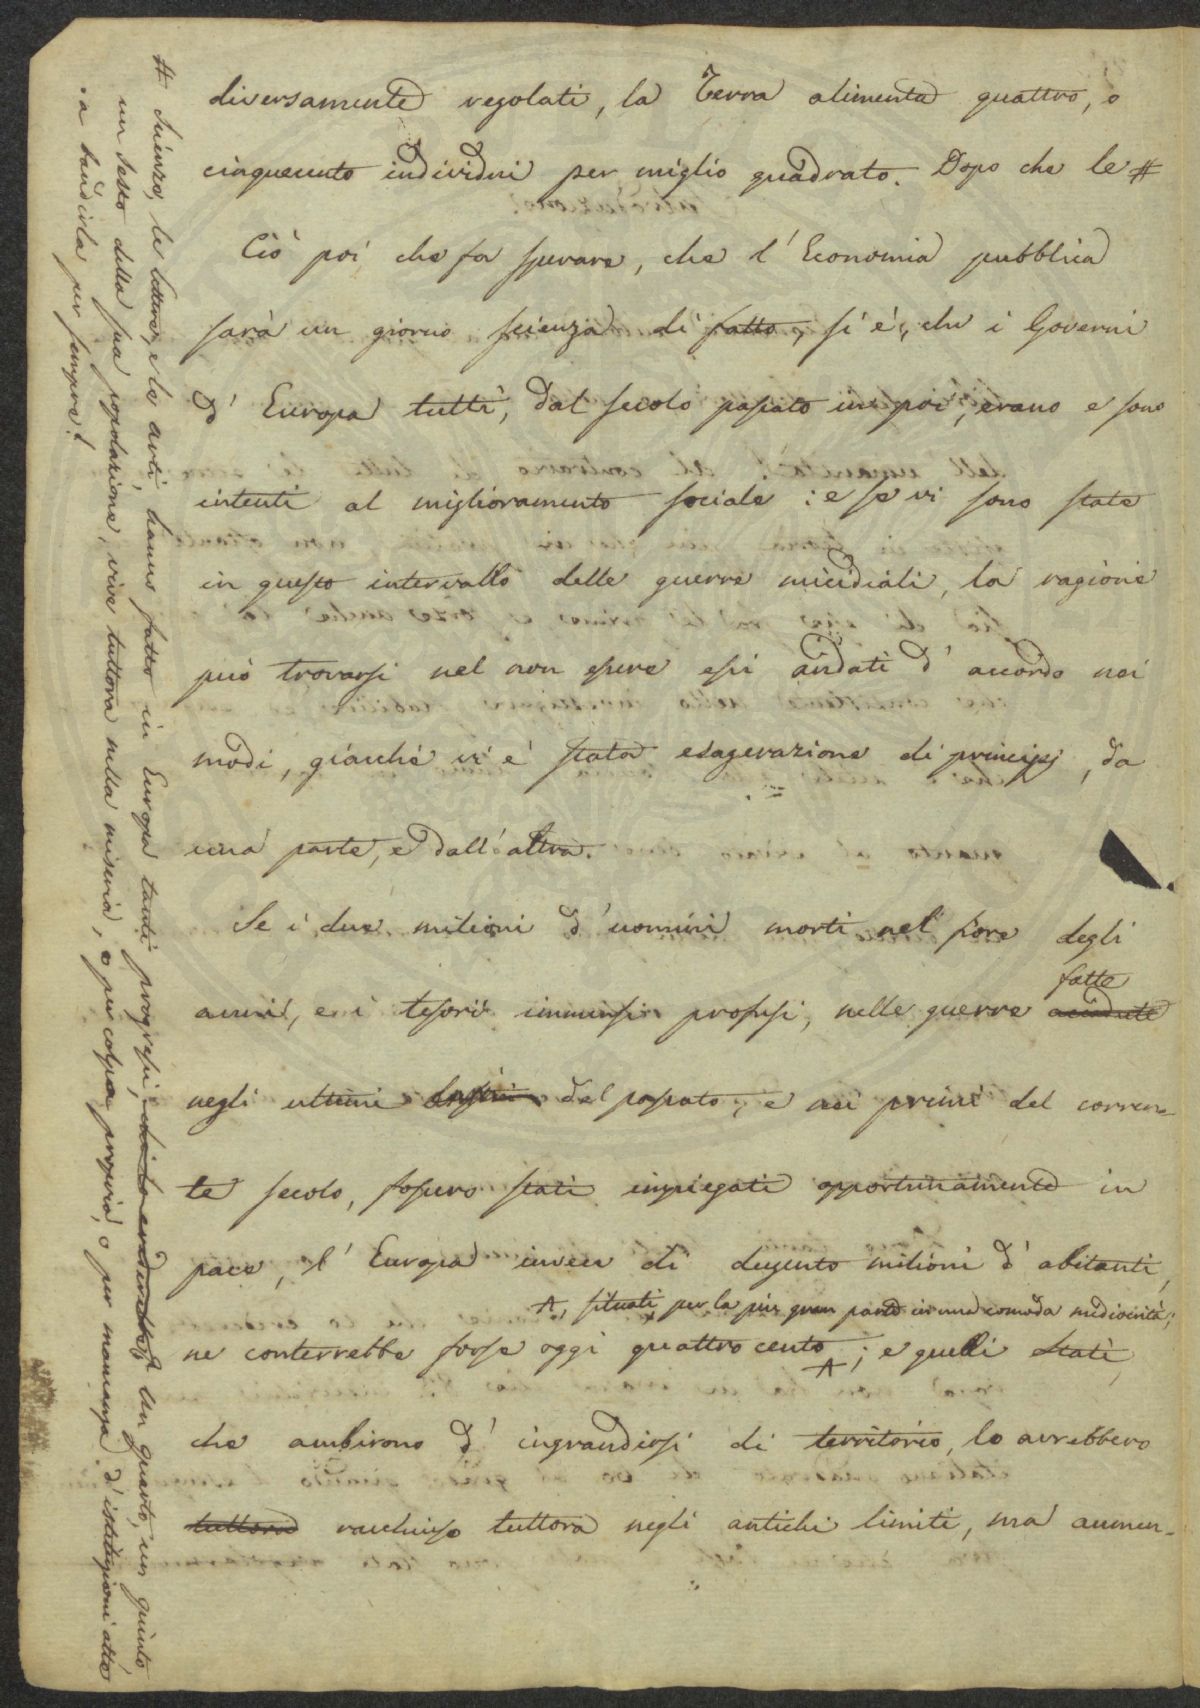 diversamente regolati, la Terra alimenta quattro, o
cinquecento individui per miglio quadrato. Dopo che le #
Ciò poi che fa sperare, che l'Economia pubblica
sarà un giorno scienza di fatto, si è, che i Governi
d'Europa tutti, dal secolo passato in poi, erano e sono
intenti al miglioramento sociale: e se vi sono state
in questo intervallo delle guerre micidiali, la ragione
può trovarsi nel non essere essi andati d'accordo nei
modi, giacché vi è stata esagerazione di principj, da
una parte, e dall'altra.
Se i due milioni d'uomini morti nel fiore degli
anni, e i tesori immensi profusi, nelle guerre accadute fatte
negli ultimi del passato, e nei primi del corren-
te secolo, fossero stati impiegati opportunamente in
pace, l'Europa invece di dugento milioni d'abitanti,
A, situati per la più gran parte in una comoda mediocrità;
ne conterrebbe forse oggi quattrocento A; e quelli Stati,
che ambirono d'ingrandirsi di territorio, lo avrebbero
tuttora racchiuso tuttora negli antichi limiti, ma aumen-
# scienze, le lettere, e le arti, hanno fatto in Europa tanti progressi, un quarto, un quinto
un sesto della sua popolazione, vive tuttora nella miseria, o per colpa propria, o per mancanza d'istituzioni atte
a bandirla per sempre!